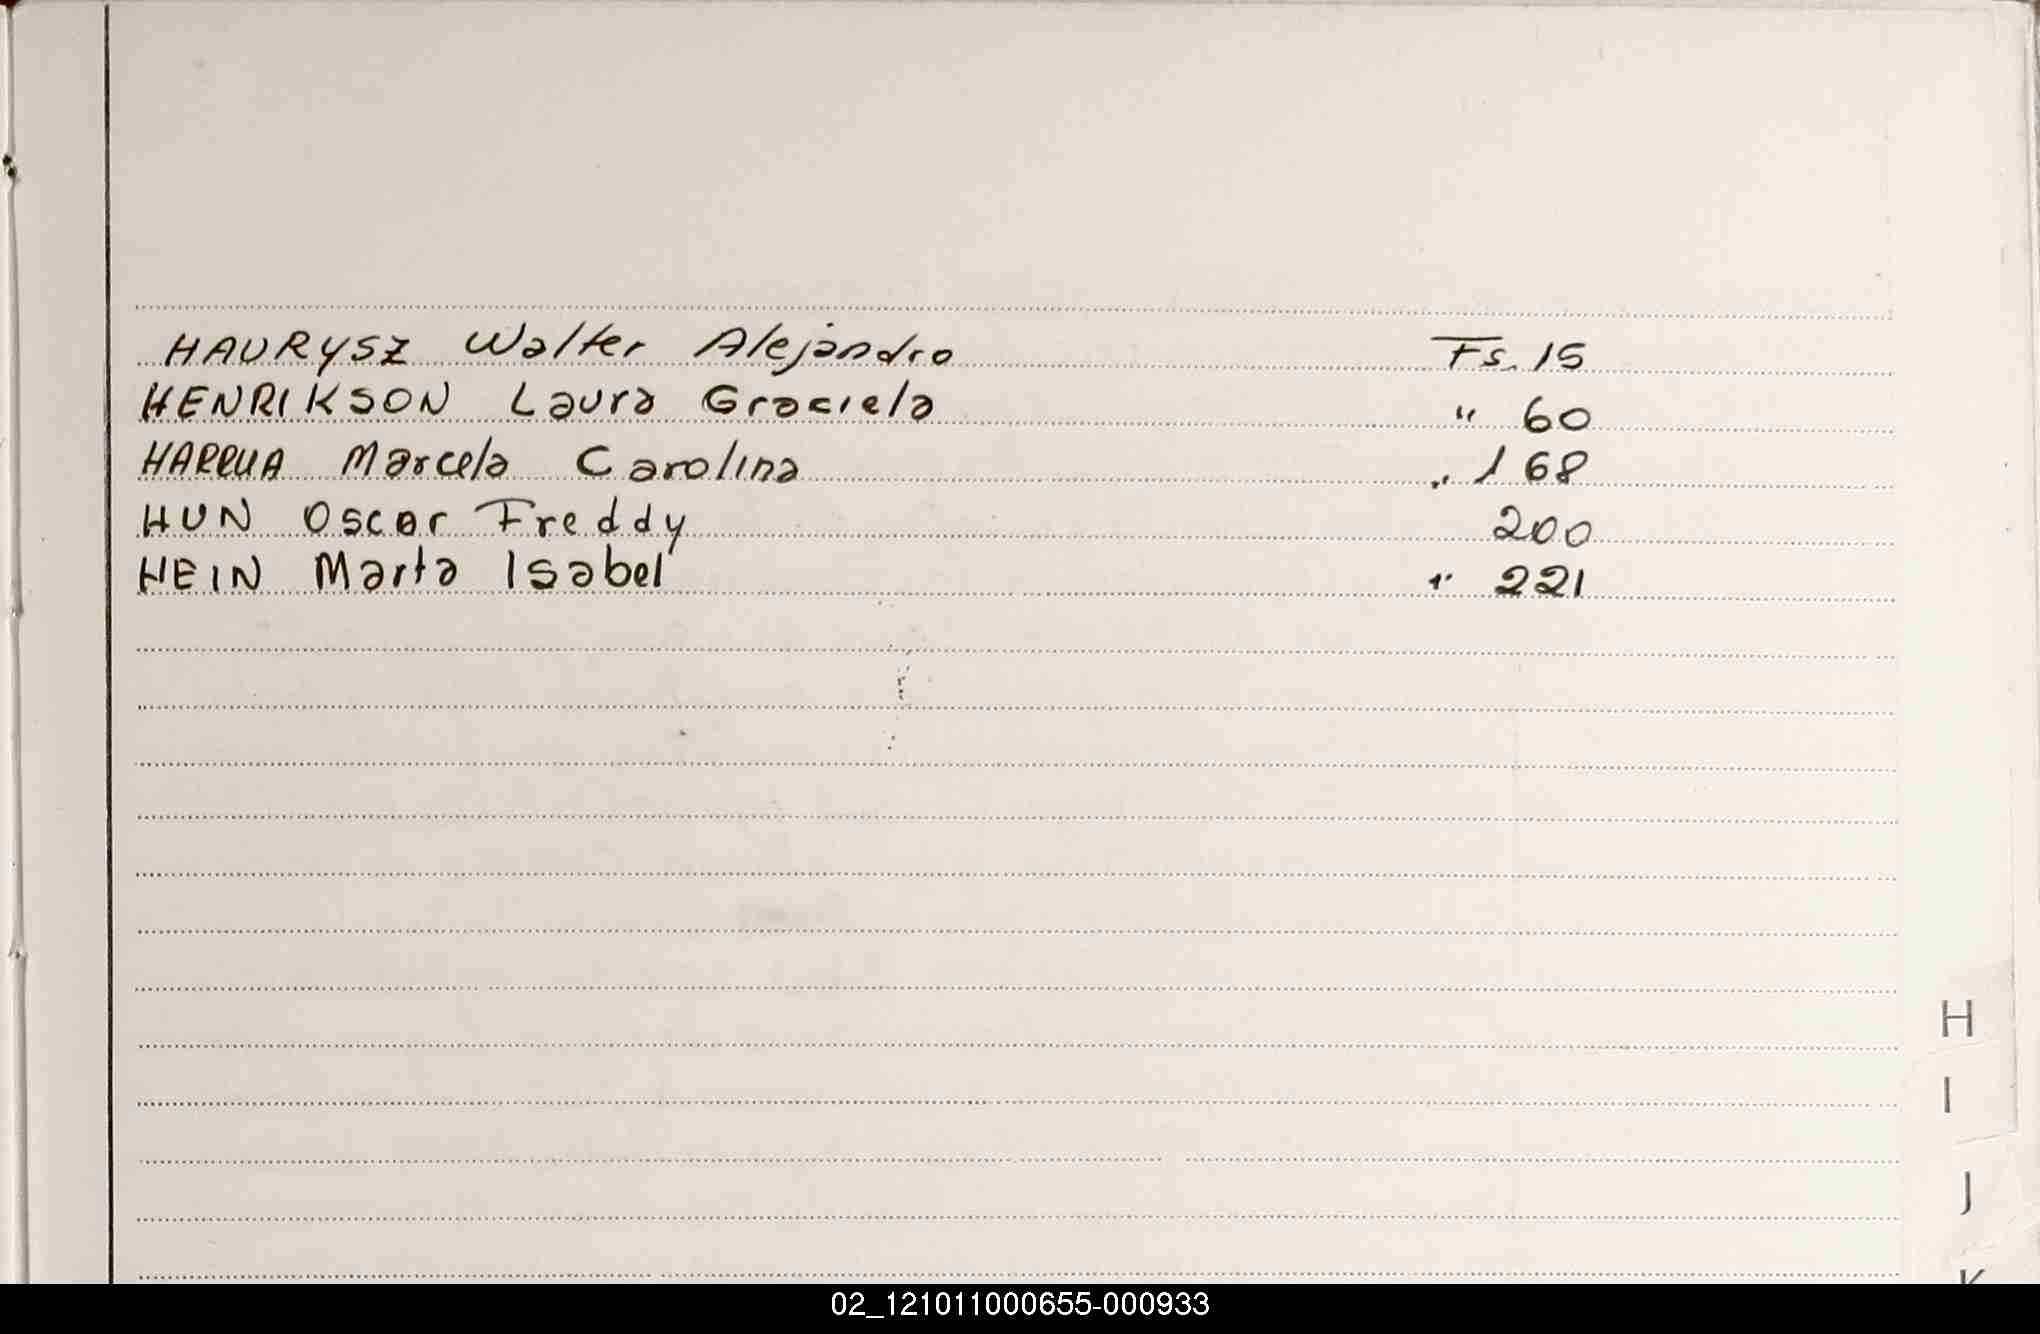 HAURYSZ Walter Alejandro Fs. 15
HENRIKSON Laura Graciela " 60
HARRUA Marcela Carolina " 168
HUN Oscar Freddy 200
HEIN Marta Isabel " 221
H
I
J
K
02_121011000655-000933